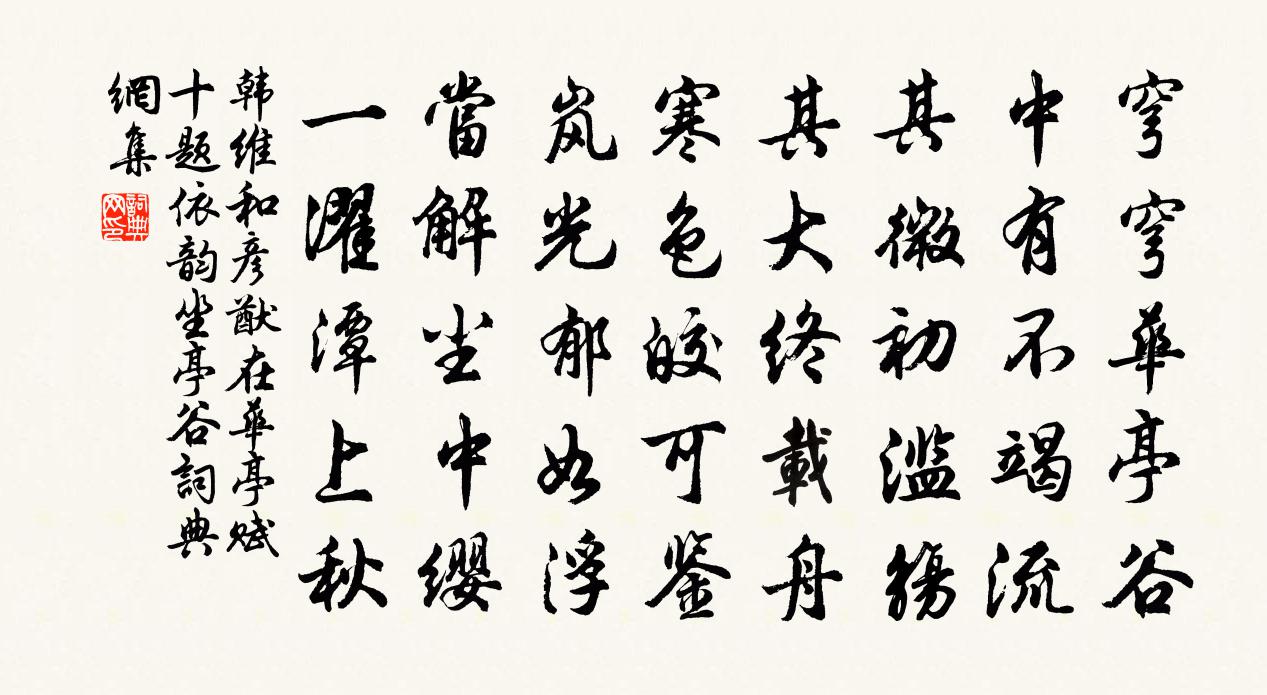 穹穹華亭谷
中有不竭流
其微初濫觴
其大终載舟
寒色皎可鉴
岚光郁如浮
當解尘中缨
一濯潭上秋
韩维和彦猷在華亭赋
十题依韵坐亭谷詞典
網集
詞典
网印